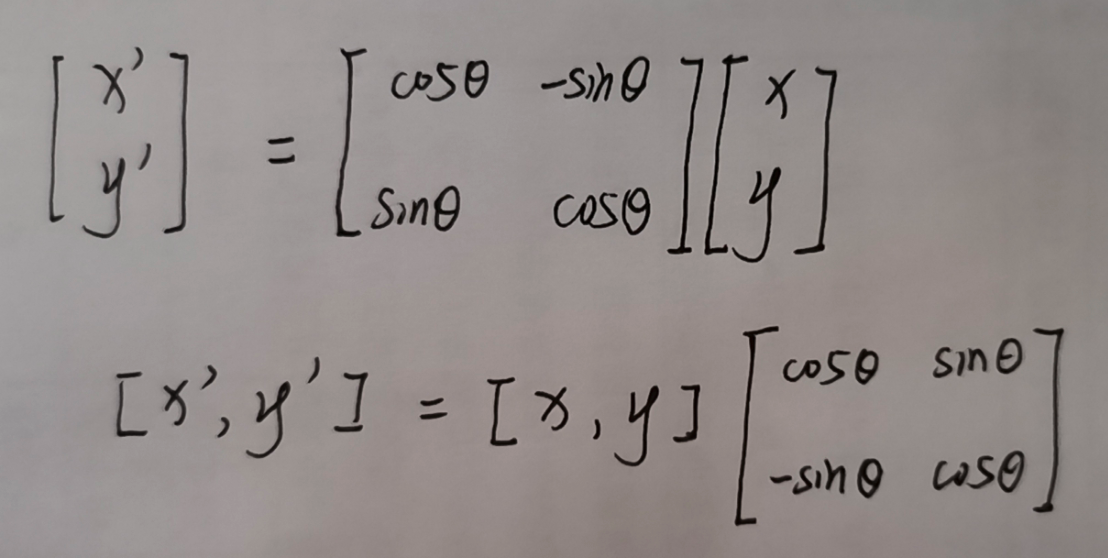 [x' y'] = [cosθ -sinθ sinθ cosθ] [x y]
[x', y'] = [x, y] [cosθ sinθ -sinθ cosθ]